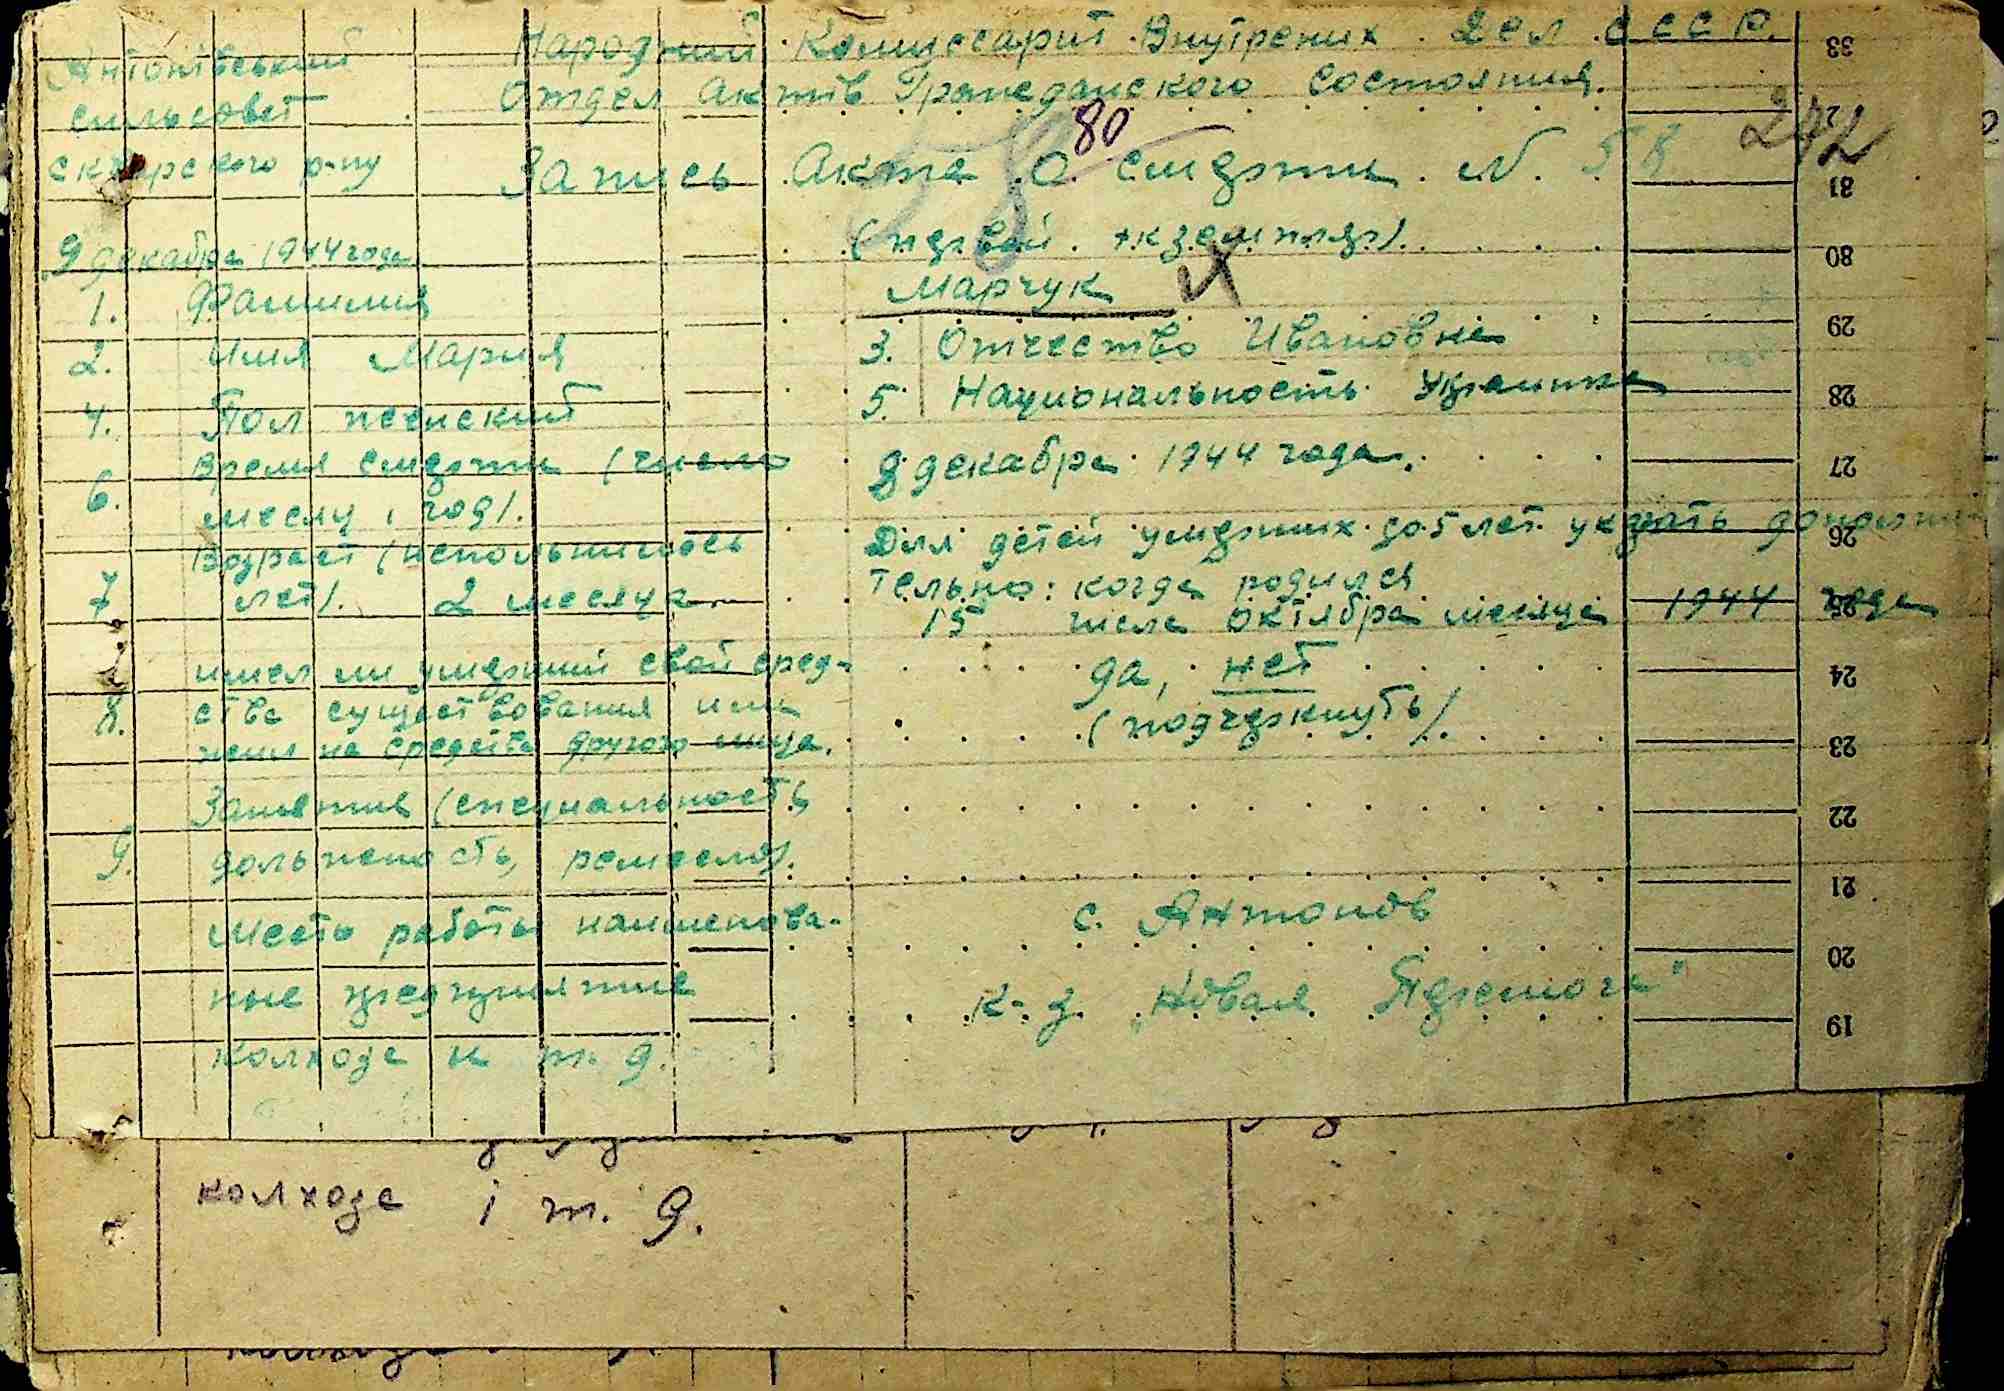 Народний Комиссариат Внутрених Дел СССР.
Антонівський
сильсовет
сквирского р-ну
Отдел Актів Гражданского Состояния.
80
242
Запись Акта о смерти N. 58
58
9 декабря 1944 года
(первой экземпляр).
1. Фамилия Марчук
2. Имя Мария 3. Отчество Ивановна
4. Пол женский 5. Национальность Украинка
6. Время смерти (число месяц, год). 8 декабря 1944 года.
7 Возраст (исполнилось лет). 2 месяца
Для детей умерших до 5 лет указать дополни-
тельно: когда родился
15 числа октября месяца 1944 года
8. имел ли умерший свой сред-
ства существования или
жил на средства другого лица.
да, нет
(подчеркнуть).
9. Занятие (специальность,
должность, ремесло).
Место работы наименова-
ние предприятие
колхоза и т. д.
с. Антонов
к-з „Новая Перемога"
33
31
30
29
28
27
26
25
24
23
22
21
20
19
колхоза і т. д.